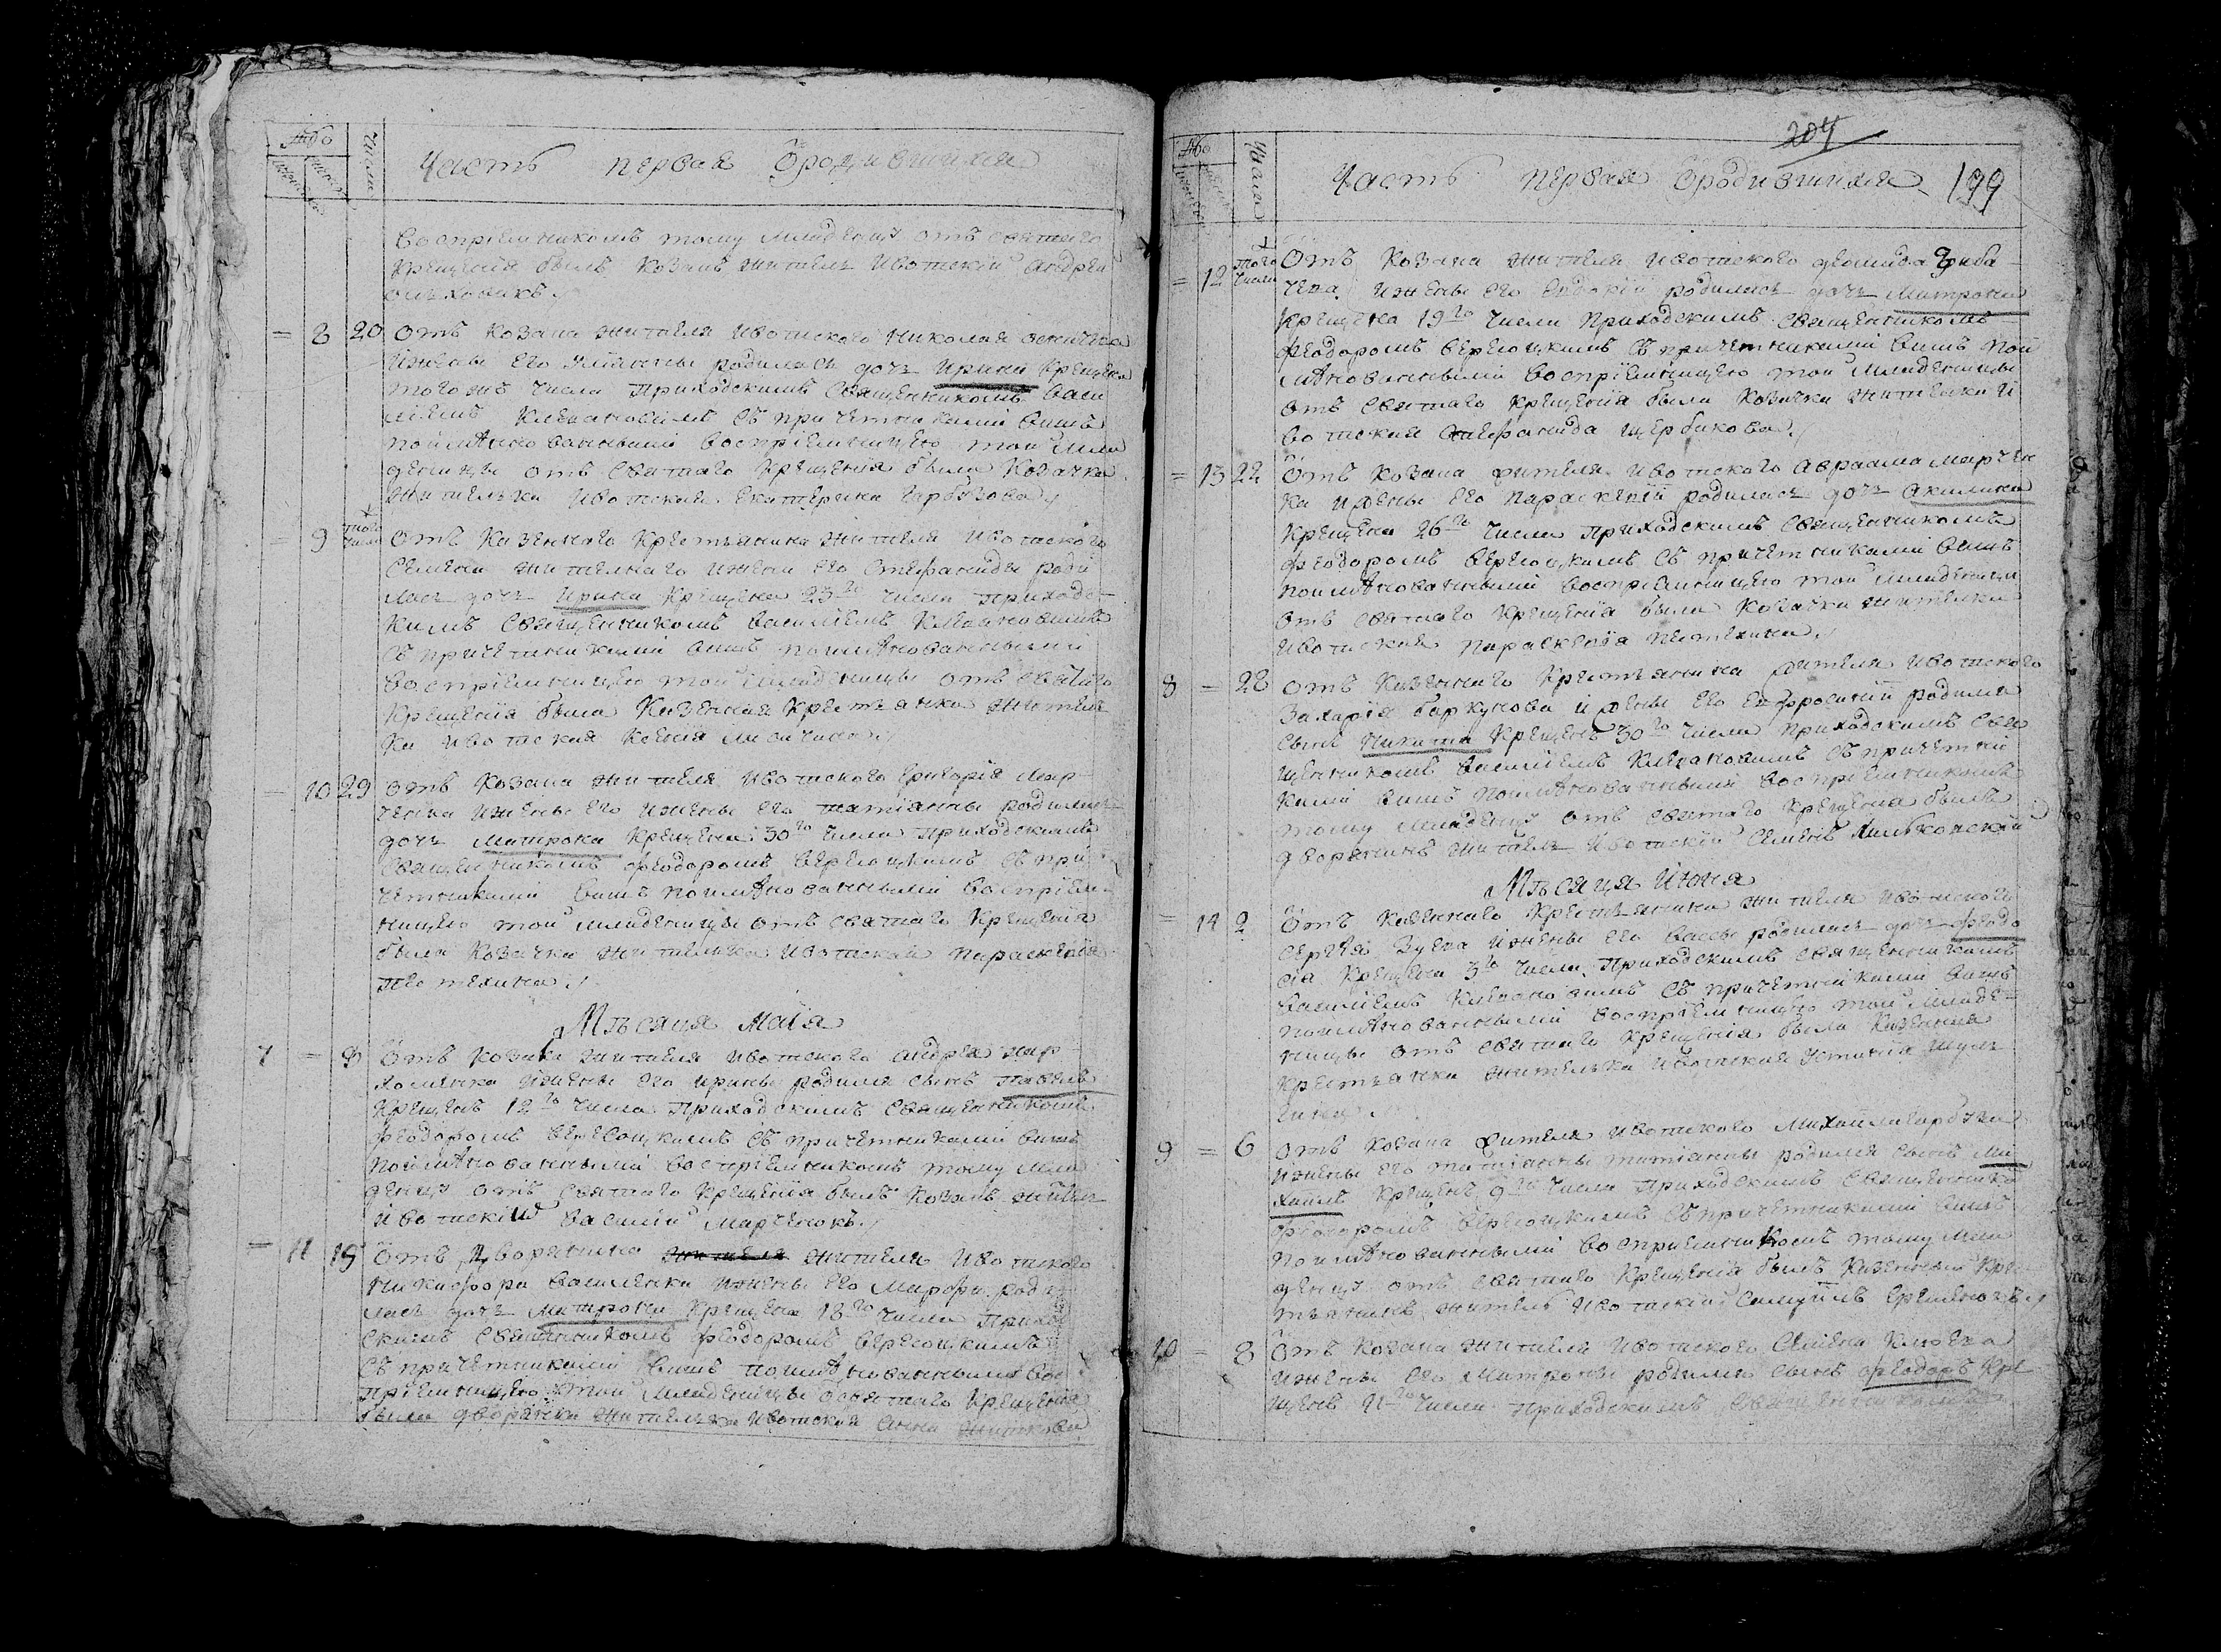 Часть первая о родившихся
Числа
воспріемникомъ тому младенцу отъ святаго
крещенія былъ козакъ житель ивотскій андрей
= 8 20 отъ козака жителя ивотского николая
и жены его улiанны родилась дочь ирина крещена
того жъ числа приходскимъ священникомъ васи
ліемъ съ причетниками вишъ
поимѣнованными воспріемницею той мла
деницы отъ святаго крещенія была козачка
жителька ивотская екатерина гарбузова
= 9 того числа отъ казенного крестьянина жителя ивотского
семена жителнаго и жены его стефаниды роди
лась дочь ирина крещена 23го числа приходс
кимъ священникомъ василіемъ
съ причетниками вишъ поимѣнованными
воспріемницею той младеницы отъ святаго
крещенія была казенная крестьянка житель
ка ивотская ксенія
= 10 29 отъ козака жителя ивотского григорія мар
ченка и жены его и жены его татіанны родилась
дочь матрона крещена 30го числа приходскимъ
священникомъ феодоромъ вересоцкимъ съ при
четниками вишъ поимѣнованными воспріем
ницею той младеницы отъ святаго крещенія
была козачка жителька ивотская параскевія
петехина
Мѣсяца маія
7 = 9 отъ козака жителя ивотского андрея пар
хоменка и жены его ирины родился сынъ павелъ
крещенъ 12го числа приходскимъ священникомъ
феодоромъ вересоцкимъ съ причетниками вишъ
поимѣнованными воспріемникомъ тому мла
денцу отъ святаго крещенія былъ козакъ житель
ивотскій василій марченокъ
= 11 15 отъ дворянина жителя ивотского
никифора василенка и жены его марфы роди
лась дочь матрона крещена 18го числа приход
скимъ священникомъ феодоромъ вересоцкимъ
съ причетниками вишъ поимѣнованными вос
пріемницею той младеницы святаго крещенія
была дворянка жителька ивотская анна
204
Часть первая о родившихся 199
Числа
= 12 того числа отъ козака жителя ивотского
и жены его евдокіи родилась дочь матрона
крещена 19го числа приходскимъ священникомъ
феодоромъ вересоцкимъ съ причетниками вишъ пои
мѣнованными воспріемницею той младеницы
отъ святаго крещенія была козачка жителька и
вотская стефанида щербакова
= 13 22 отъ козака жителя ивотского авраама марчен
ка и жены его параскевіи родилась дочь акилина
крещена 26го числа приходскимъ священникомъ
феодоромъ вересоцкимъ съ причетниками вишъ
поимѣнованными воспріемницею той младеници
отъ святаго крещенія была козачка жителька
ивотская параскевія петехина
8 = 28 отъ казенного крестьянина жителя ивотского
захарія баркунова и жены его евфросиніи родился
сынъ никита крещенъ 30го числа приходскимъ свя
щенникомъ василіемъ съ причетни
ками вишъ поимѣнованными воспріемникомъ
тому младенцу отъ святаго крещенія былъ
дворянинъ житель ивотскій семенъ
Мѣсяца июня
= 14 2 отъ казенного крестьянина жителя ивотского
сергѣя зуева и жены его вассы родилась дочь феодо
сія крещена 3го числа приходскимъ священникомъ
василіемъ съ причетниками вишъ
поимѣнованными воспріемницею той младе
ницы отъ святаго крещенія была казенная
крестьянка жителька ивотская устинія
9 = 6 отъ козака жителя ивотского михаила гарбуза
и жены его татіанны татіанны родился сынъ ми
хаилъ крещенъ 9го числа приходскимъ священнико
феодоромъ вересоцкимъ съ причетниками вишъ
поимѣнованными воспріемникомъ тому мла
денцу отъ святаго крещенія былъ казенный крес
тьянинъ житель ивотскій самуилъ
10 = 8 отъ козака жителя ивотского семена
и жены его матроны родился сынъ феодоръ кре
щенъ 11го числа приходскимъ священникомъ